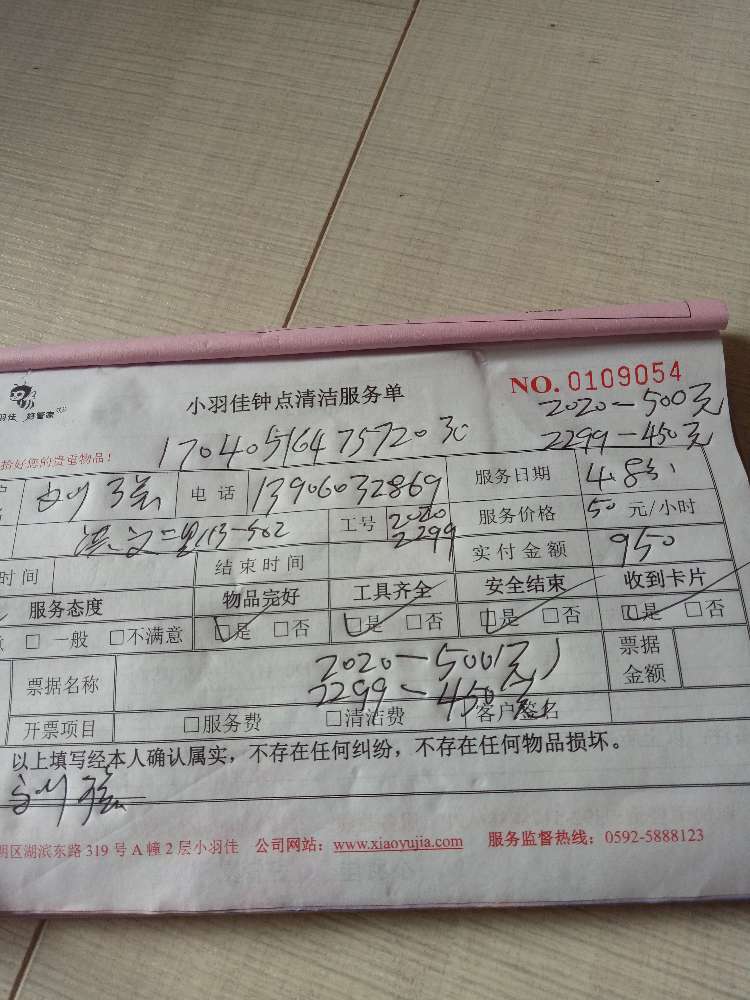 小羽佳钟点清洁服务单
NO. 0109054
羽佳 好管家
2020-500元
拾好您的贵重物品!
170405164757203C
2299-450元
电话 13906032869 服务日期
115-502 工号 2020 2299 服务价格 50 元/小时
时间 结束时间 实付金额 950
服务态度 物品完好 工具齐全 安全结束 收到卡片
□ 一般 □不满意 □是 □否 □是 □否 □是 □否 □是 □否
票据名称 2020-500元 票据金额
2299-450元
开票项目 □服务费 □清洁费 客户签名
以上填写经本人确认属实，不存在任何纠纷，不存在任何物品损坏。
明区湖滨东路 319 号 A 幢 2 层小羽佳 公司网站：www.xiaoyujia.com 服务监督热线：0592-5888123